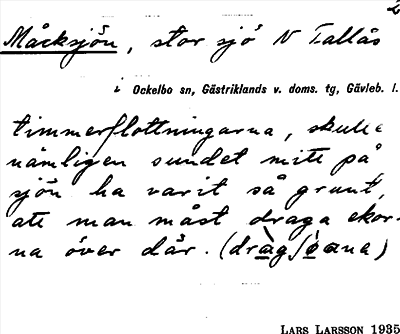 2
Måcksjön, stor sjö N Tallås
i Ockelbo sn, Gästriklands v. doms. tg, Gävleb. l.
timmerflottningarna, skulle
nämligen sundet mitt på
sjön ha varit så grunt,
att man måst draga ekor-
na över där. (dràg
LARS LARSSON 1935